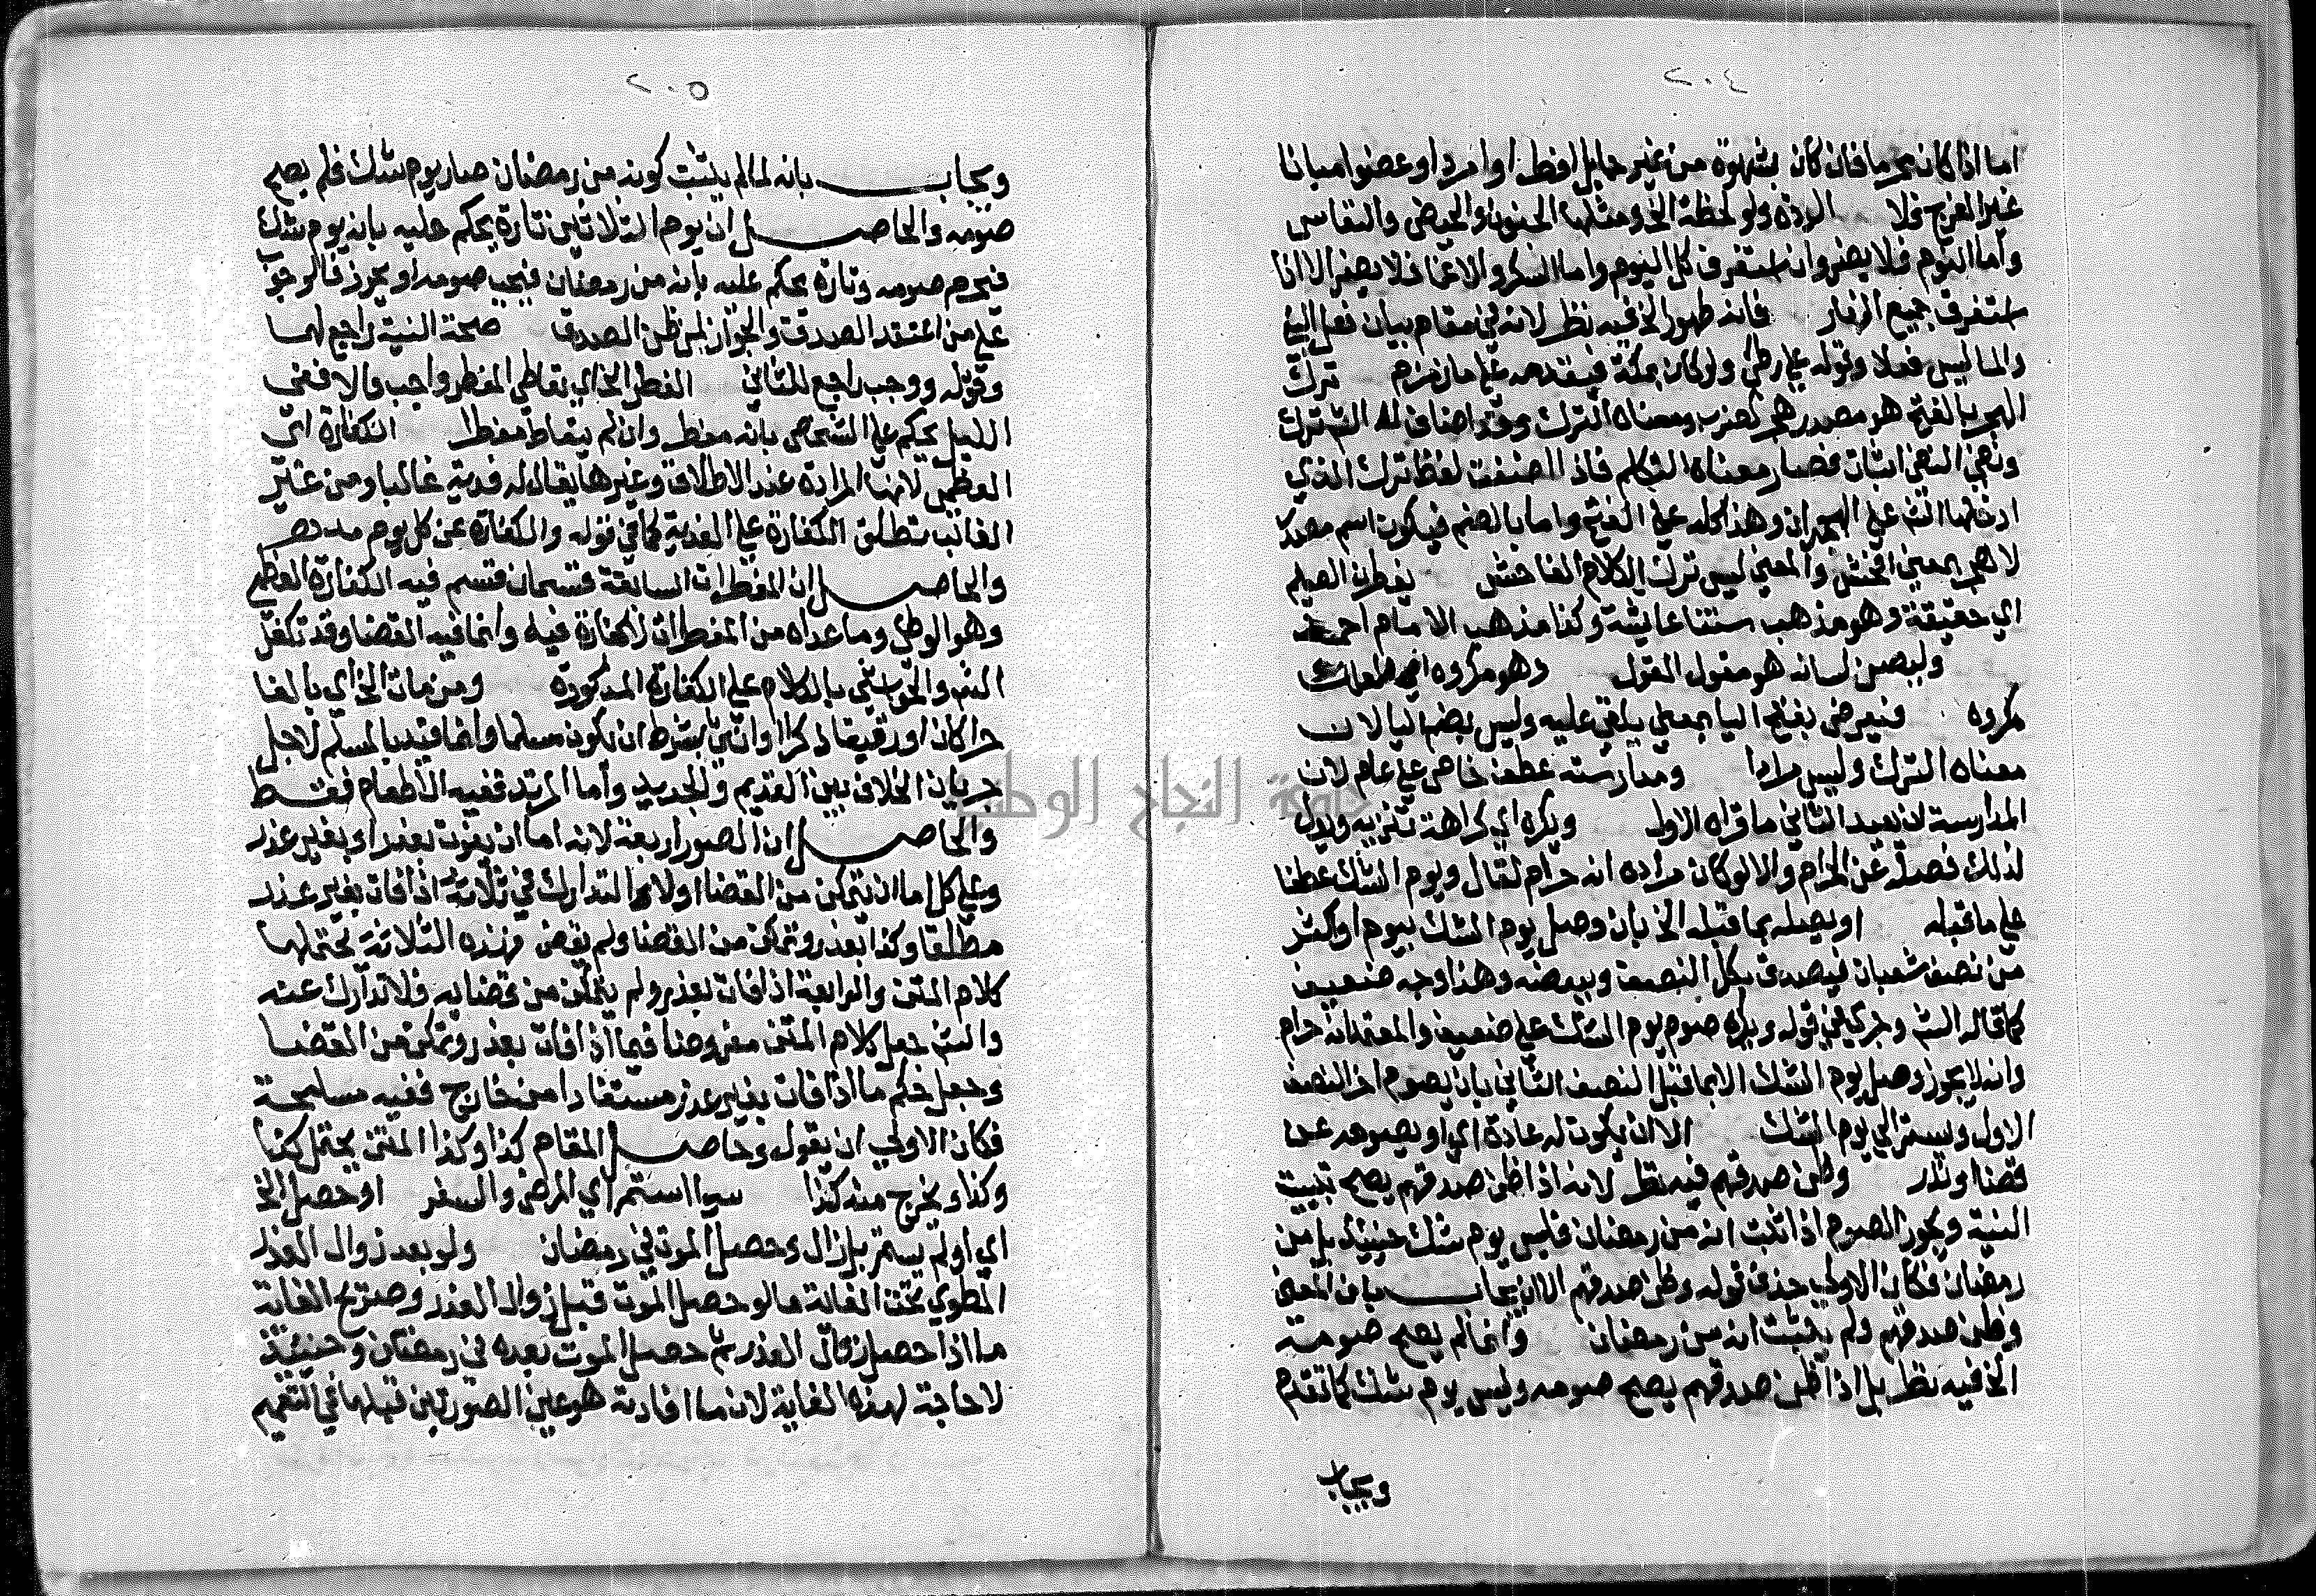 ٢٠٤
اما اذا كان محرما فان كان بشهوة من غير حايل افطر او امرد او عضوا مبانا
غير الفرج فلا الردة ولو لحظة الخ ومثلها الجنون والحيض والنفاس
واما النوم فلا يضر وان استغرق كل اليوم واما السكر والاغما فلا يضر الا اذا
استغرق جميع النهار فانه طهور الخ فيه نظر لانه في مقام بيان فعل النبي
والما ليس فعلا وقوله علي رطب ولو كان بمكة فيقدمه علي ماء زمزم ترك
الهجر بالفتح هو مصدر هجر كضرب ومعناه الترك وقد اضاف له الش ترك
ونفي النفي اثبات فصار معناه التكلم فاذا لفظ ترك الذي
ادخلها الش علي الهجران وهذا كله علي الفتح واما بالضم فيكون اسم مصدر
لاهجر بمعني افحش والمعني ليس ترك الكلام الفاحش يفطران الصائم
اي حقيقة وهو مذهب ستنا عايشة وكذا مذهب الامام احمد
وليصن لسانه هو مقول القول وهو مكروه اي
مكروه فيعرض بفتح اليا بمعني يلقي عليه وليس بضم اليا لان
معناه الترك وليس مرادا ومدارسته عطف خاص علي عام لان
المدارسة ان يعيد الثاني ما قراه الاول ويكره اي كراهة تنزيه ويدل
لذلك فصله عن الحرام والا لو كان مراده انه حرام لقال ويوم الشك عطفا
علي ما قبله او يصله بما قبله الخ بان وصل يوم الشك بيوم او اكثر
من نصف شعبان فيصدق بكل النصف وببعضه وهذا وجه ضعيف
كما قاله الش وجري في قوله ويكره صوم يوم الشك علي ضعيف والمعتمد انه حرام
وانه لا يجوز وصل يوم الشك الا بما قبل النصف الثاني بان يصوم اخر النصف
الاول ويستمر الي يوم الشك الا ان يكون له عادة اي او يصومه عن
قضا او نذر وظن صدقهم فيه نظر لانه اذا ظن صدقهم يصح تبييت
النية ويجوز الصوم اذا ثبت انه من رمضان فليس يوم شك حينئذ بل من
رمضان فكان الاولي حذف قوله وظن صدقهم الا ان يجاب بان المعني
وظن صدقهم ولم يثبت انه من رمضان وانما لم يصح صومه
الخ فيه نظر بل اذا ظن صدقهم يصح صومه وليس يوم شك كما تقدم
ويجاب
٢٠٥
ويجاب بانه لما لم يثبت كونه من رمضان صار يوم شك فلم يصح
صومه والحاصل ان يوم الثلاثين تارة يحكم عليه بانه يوم شك
فيحرم صومه وتارة يحكم عليه بانه من رمضان فيجب صومه او يجوز فالوجوب
علي من اعتقد الصدق والجواز لمن ظن الصدق صحة النية راجع لهما
وقوله ووجب راجع للثاني الفطر الخ اي تعاطي المفطر واجب والا فمضي
الليل يحكم علي الشخص بانه مفطر وان لم يتعاط مفطرا الكفارة اي
العظمي لانها المرادة عند الاطلاق وغيرها يقال له فدية غالبا ومن غير
الغالب تطلق الكفارة علي الفدية كما في قوله والكفارة عن كل يوم مد
والحاصل ان المفطرات السابقة قسمان قسم فيه الكفارة العظمي
وهو الوطي وما عداه من المفطرات لا كفارة فيه وانما فيه القضا وقد تكفل
الش بالكلام علي الكفارة المذكورة ومن مات الخ اي بالغا
حرا كان او رقيقا ذكرا او انثي بشرط ان يكون مسلما وانما قيد بالمسلم لاجل
جريان الخلاف بين القديم والجديد واما المرتد ففيه الاطعام فقط
والحاصل ان الصور اربعة لانه اما ان يفوت بعذر او بغير عذر
وعلي كل اما ان يتمكن من القضا او لا التدارك في ثلاثة اذا فات بغير عذر
مطلقا وكذا بعذر وتمكن من القضا ولم يقض فهذه الثلاثة يحتملها
كلام المتن والرابعة اذا فات بعذر ولم يتمكن من قضائه فلا تدارك عنه
والش جعل كلام المتن مفروضا فيما اذا فات بعذر وتمكن من القضا
وجعل حكم ما اذا فات بغير عذر مستفادا من خارج ففيه مسامحة
فكان الاولي ان يقول وحاصل المقام كذا وكذا المتن يحتمل كذا
وكذا ويخرج منه كذا سوا استمر اي المرض والسفر او حصل الخ
اي او لم يستمر بل زال وحصل الموت في رمضان ولو بعد زوال العذر
المطوي تحت الغاية ما لو حصل الموت قبل زوال العذر وصريح الغاية
ما اذا حصل زوال العذر ثم حصل الموت بعده في رمضان وحينئذ
لا حاجة لهذه الغاية لان ما افادته هو عين الصورتين قبلها في التعميم
جامعة النجاح الوطنية